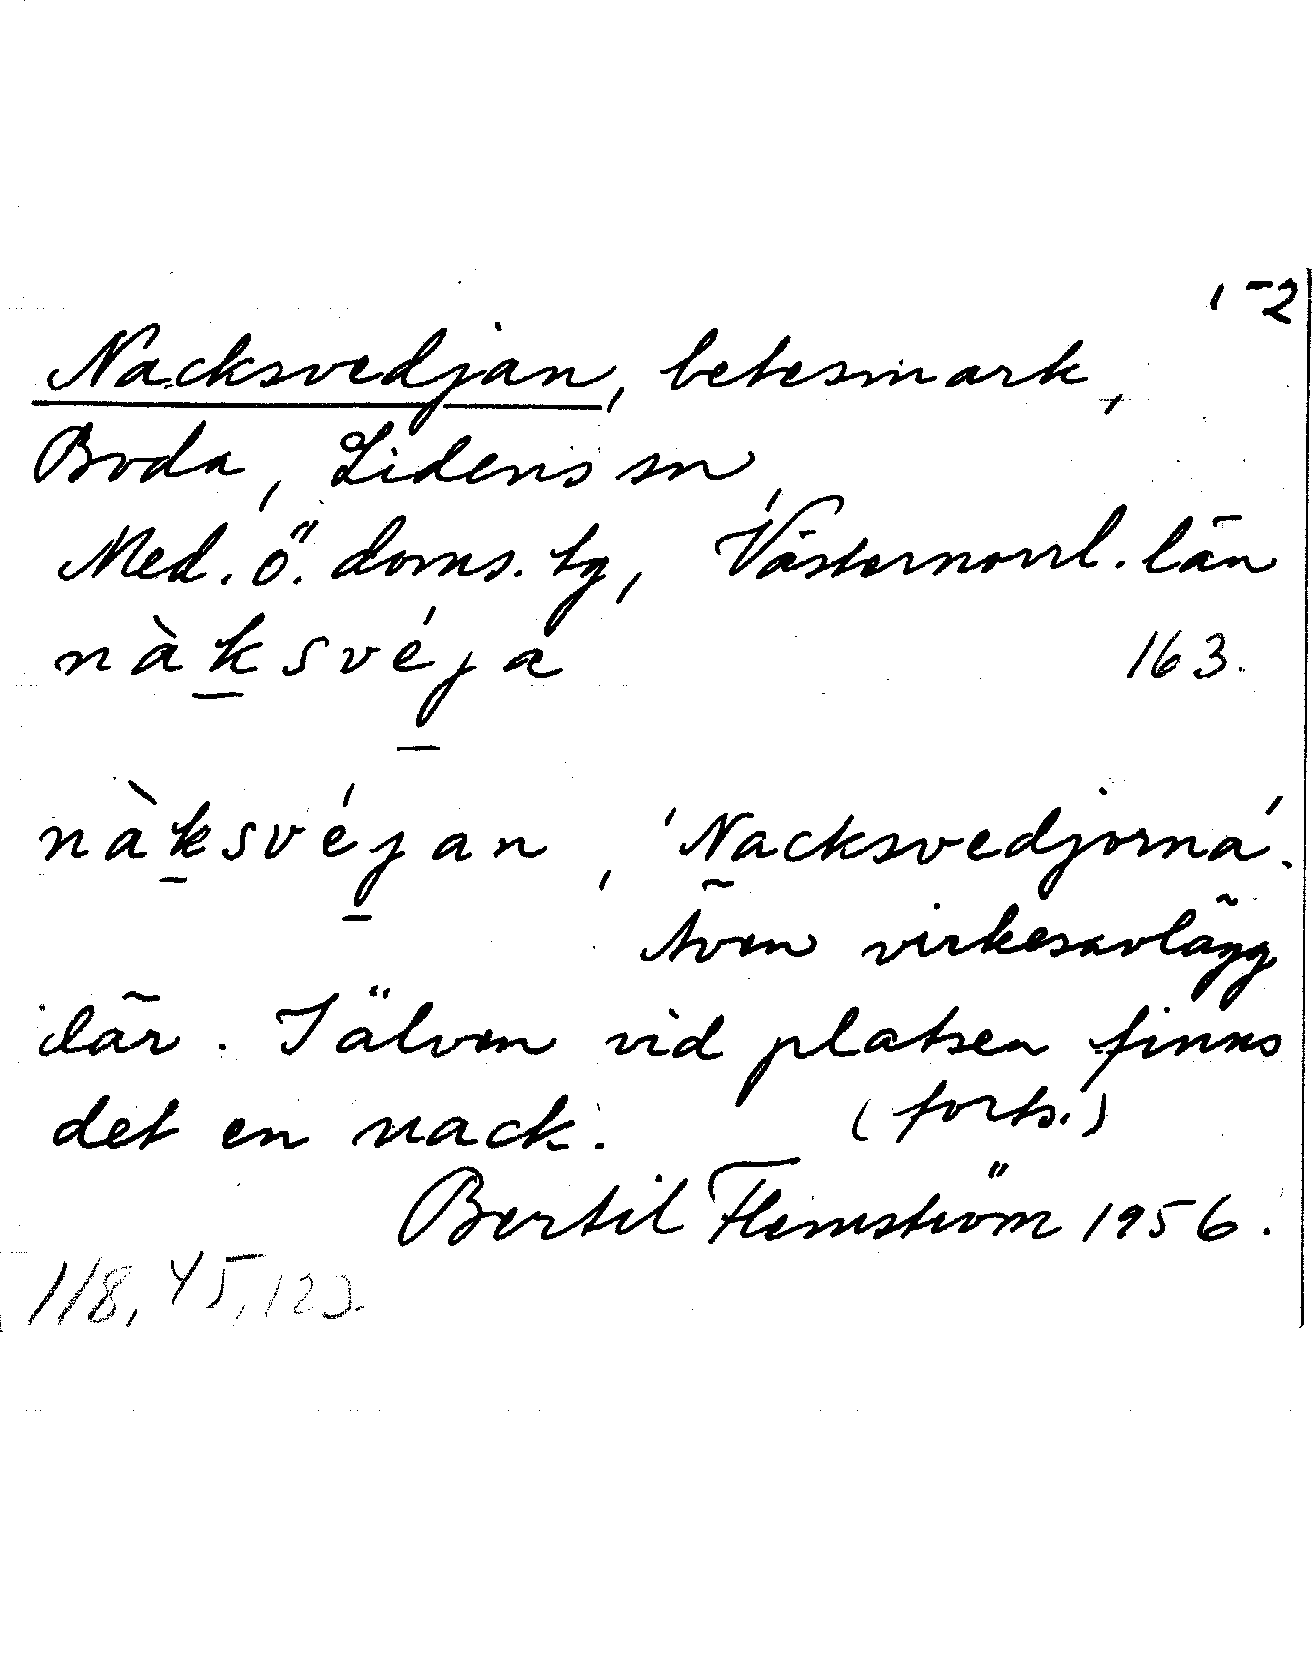 1-2
Nacksvedjan, betesmark,
Boda, Lidens sn,
Med. ö. doms. tg, Västernorrl. län
nàksvéja 163.
nàksvéjan, 'Nacksvedjorna'.
Även virkesavlägg
där. I älven vid platsen finns
det en nack. (forts.)
Bertil Flemström 1956.
118, 45, 123.